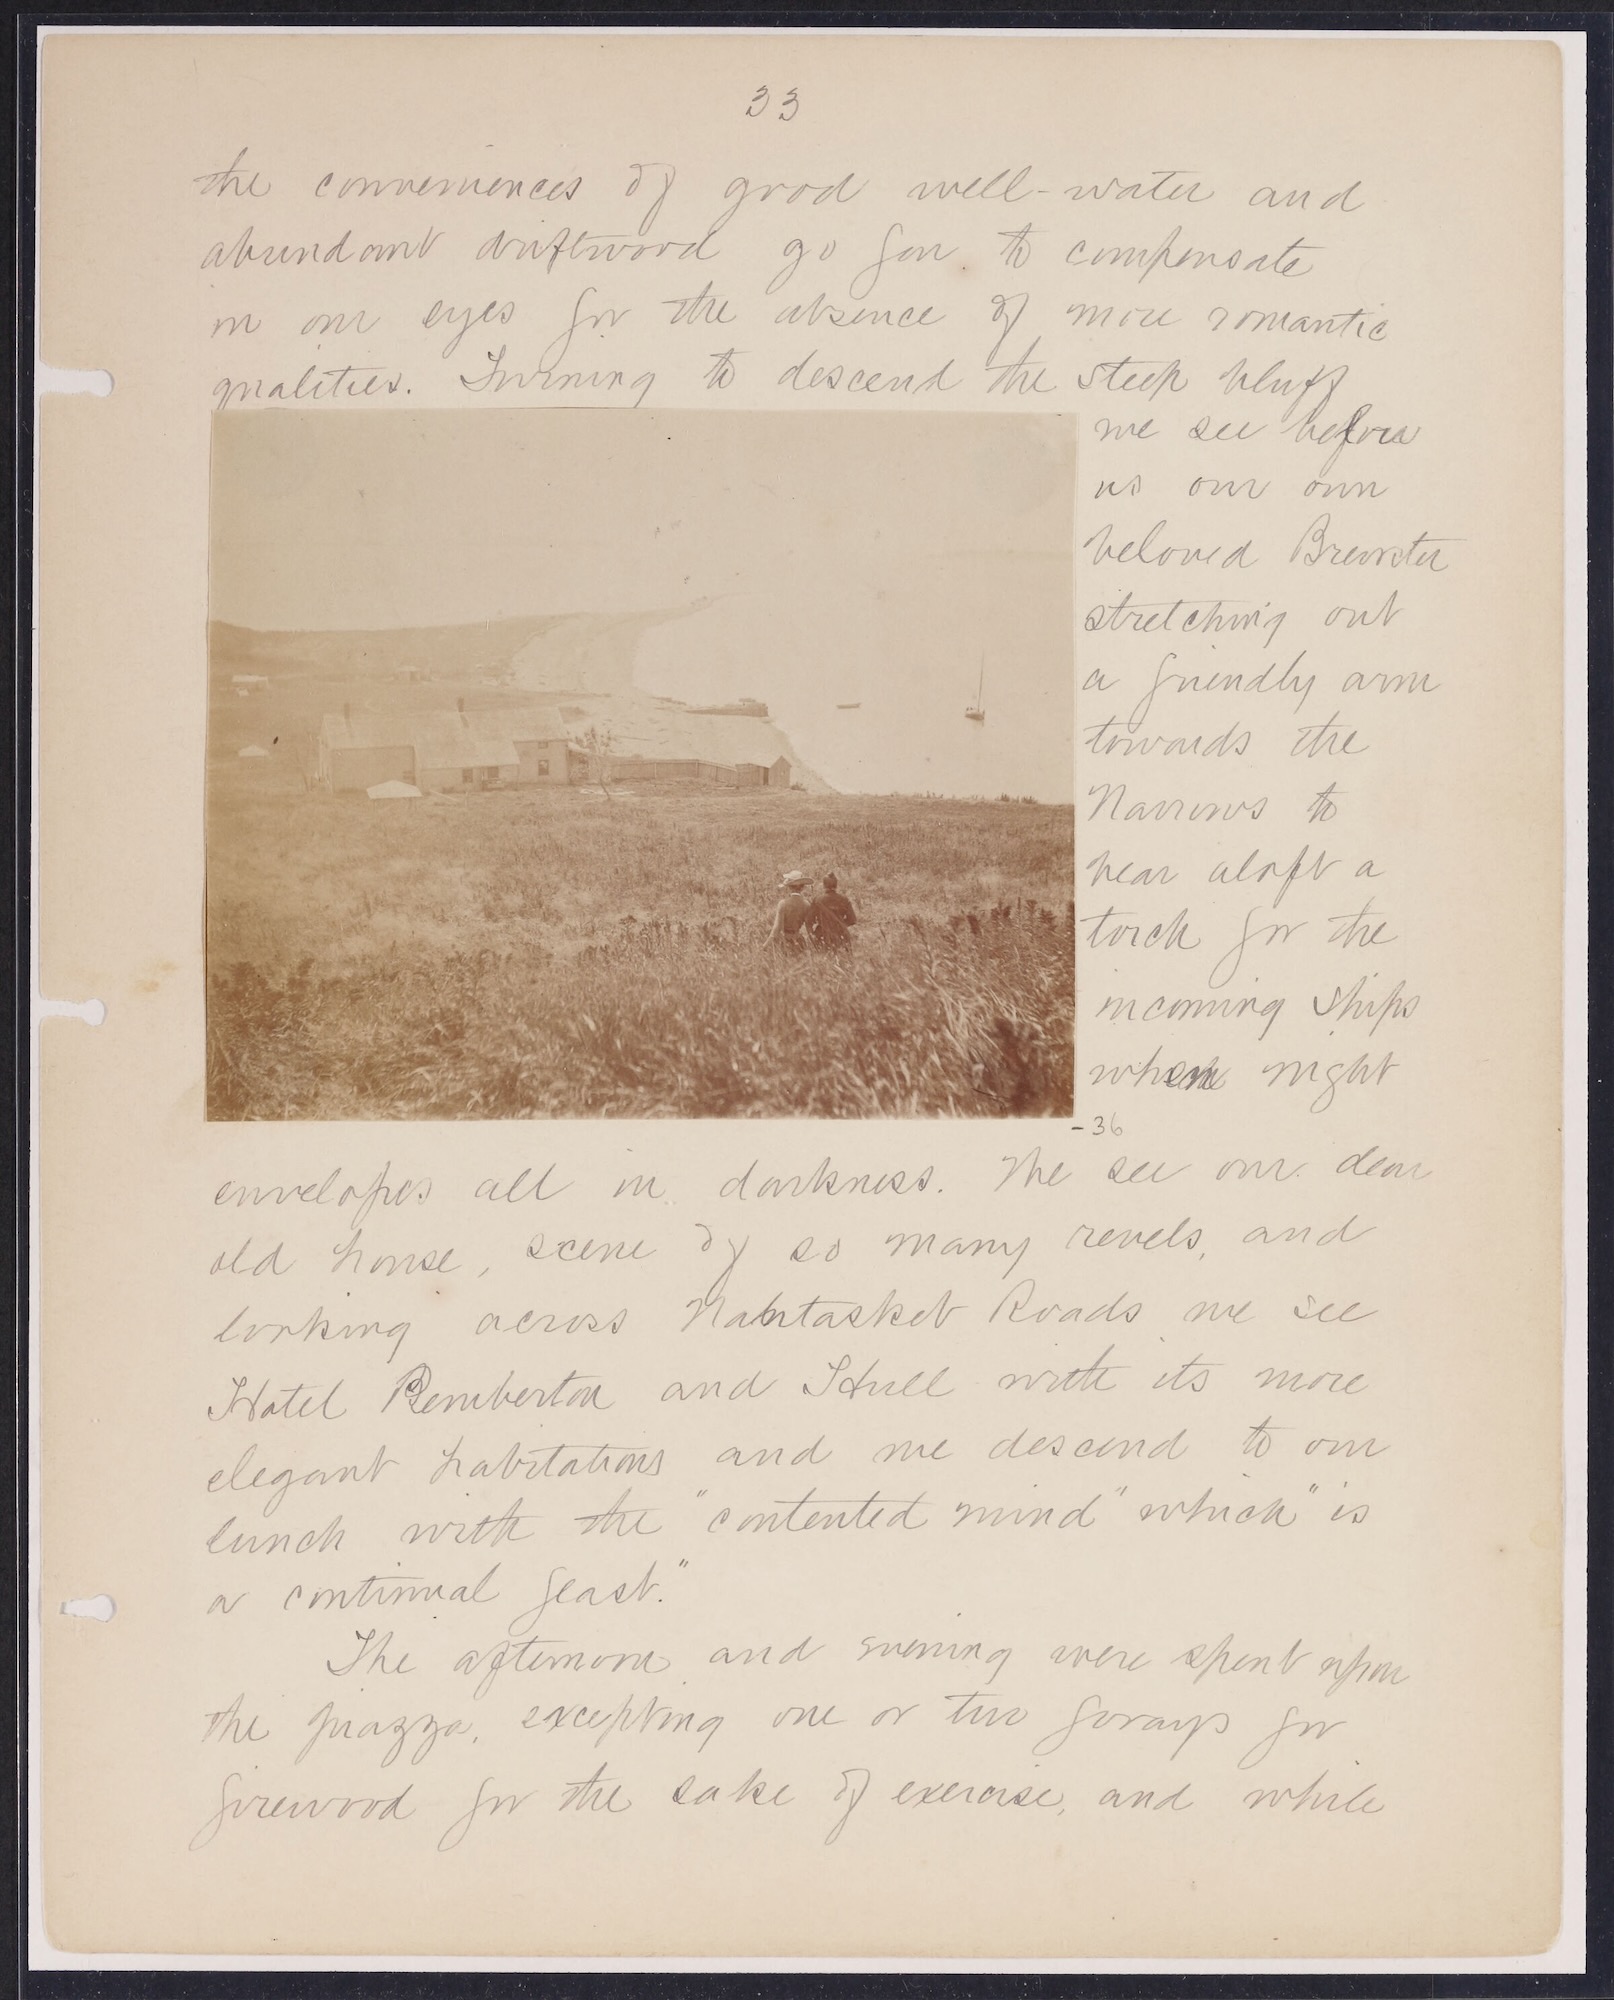 33
the conveniences of good well-water and
abundant driftwood go far to compensate
in our eyes for the absence of more romantic
qualities. Turning to descend the steep bluff
we see before
us our own
beloved Brewster
stretching out
a friendly arm
towards the
Narrows to
bear aloft a
torch for the
incoming ships
when night
-36
envelopes all in darkness. We see our dear
old house, scene of so many revels, and
looking across Nantasket Roads we see
Hotel Pemberton and Hull with its more
elegant habitations and we descend to our
lunch with the "contented mind" which "is
a continual feast."
The afternoon and evening were spent upon
the piazza, excepting one or two forays for
firewood for the sake of exercise, and while